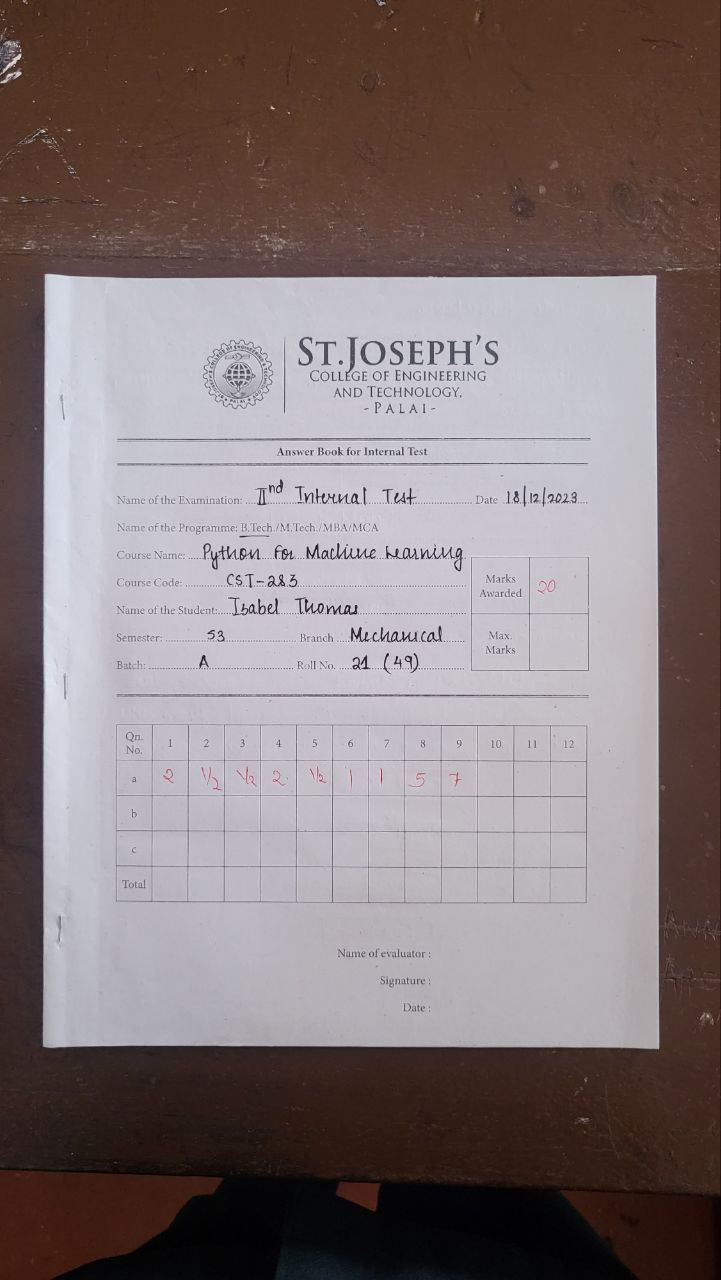 ST.JOSEPH'S
COLLEGE OF ENGINEERING
AND TECHNOLOGY,
- PALAI -
Answer Book for Internal Test
Name of the Examination: IInd Internal Test Date 18/12/2023
Name of the Programme: B.Tech./M.Tech./MBA/MCA
Course Name: Python for Machine Learning
Course Code: CST-283
Marks Awarded 20
Name of the Student: Isabel Thomas
Semester: S3 Branch Mechanical
Max. Marks
Batch: A Roll No. 21 (49)
Qn. No. 1 2 3 4 5 6 7 8 9 10 11 12
a 2 1/2 1/2 2 1/2 1 1 5 7
b
c
Total
Name of evaluator :
Signature :
Date :